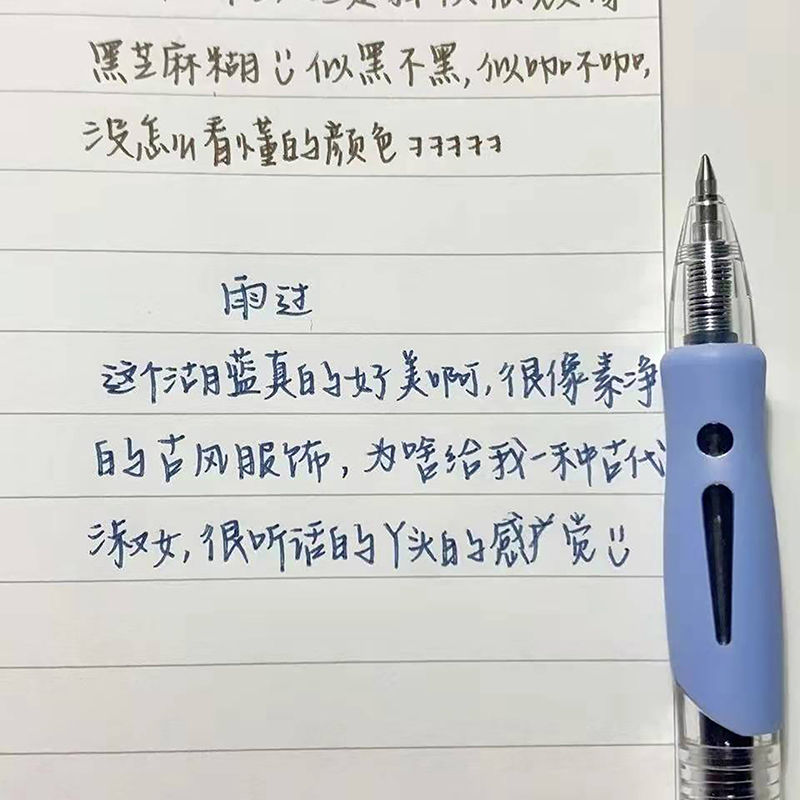 黑芝麻糊似黑不黑,似咖不咖,
没怎么看懂的颜色ママママママ
雨过
这个湖蓝真的好美啊,很像素净
的古风服饰,为啥给我一种古代
淑女,很听话的丫头的感觉